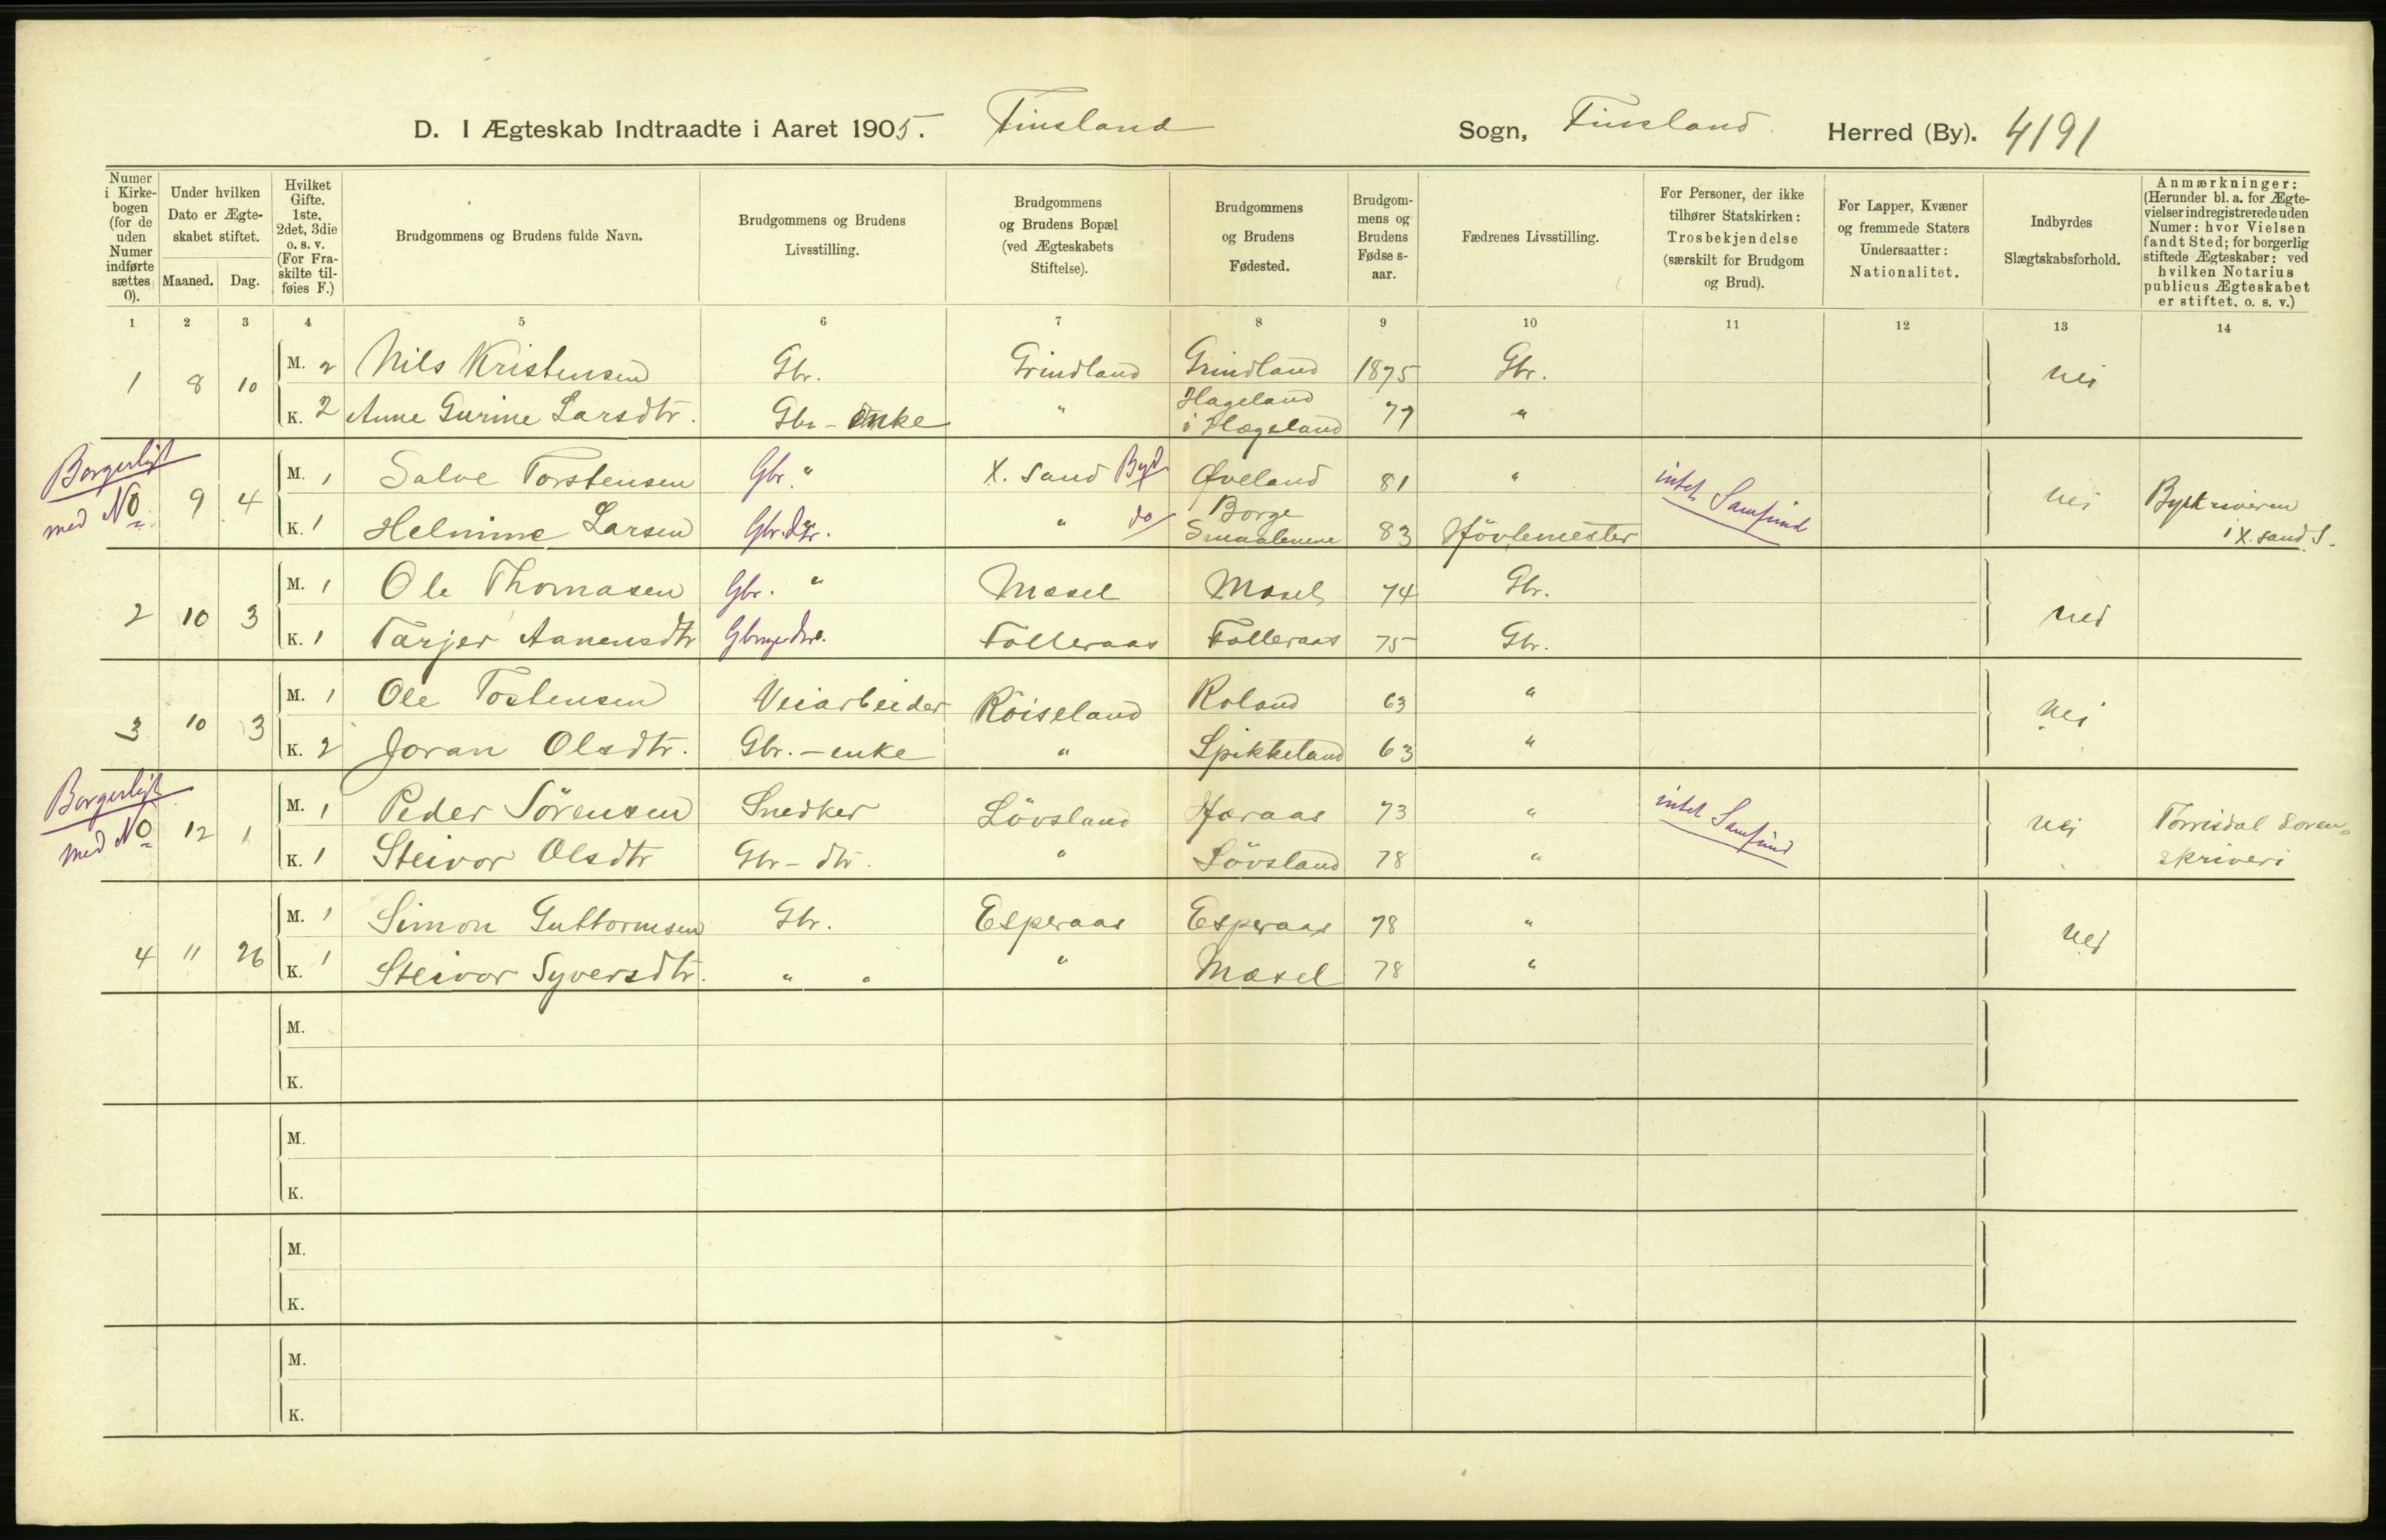 D. I Ægteskab Indtraadte i Aaret 1905. Finsland Sogn, Finsland Herred (By). 4191
Numer i Kirkebogen (for de uden Numer indførte sættes 0).
Under hvilken Dato er Ægteskabet stiftet.
Maaned. Dag.
Hvilket Gifte. 1ste, 2det, 3die o. s. v. (For Fraskilte tilføies F.)
Brudgommens og Brudens fulde Navn.
Brudgommens og Brudens Livsstilling.
Brudgommens og Brudens Bopæl (ved Ægteskabets Stiftelse).
Brudgommens og Brudens Fødested.
Brudgommens og Brudens Fødselsaar.
Fædrenes Livsstilling.
For Personer, der ikke tilhører Statskirken: Trosbekjendelse (særskilt for Brudgom og Brud).
For Lapper, Kvæner og fremmede Staters Undersaatter: Nationalitet.
Indbyrdes Slægtskabsforhold.
Anmærkninger: (Herunder bl. a. for Ægtevielser indregistrerede uden Numer: hvor Vielsen fandt Sted; for borgerlig stiftede Ægteskaber: ved hvilken Notarius publicus Ægteskabet er stiftet, o. s. v.)
1 2 3 4 5 6 7 8 9 10 11 12 13 14
1 8 10 M. 2 Nils Kristensen Gbr. Grindland Grindland 1875 Gbr. nei
K. 2 Anne Gurine Larsdtr. Gbr-enke " Hageland i Hægeland 77 "
Borgerligt med No 9 4 M. 1 Salve Torstensen Gbr. " X.sand By Øveland 81 " intet Samfund nei Byskriveren i X.sand S.
K. 1 Helmine Larsen Gbr.dtr. " do Borge Smaalenene 83 Høvlemester
2 10 3 M. 1 Ole Thomasen Gbr. " Mæsel Mæsel 74 Gbr. nei
K. 1 Tarjer Aanensdtr Folleraas Folleraas 75 Gbr.
3 10 3 M. 1 Ole Tostensen Veiarbeider Röiseland Roland 63 " nei
K. 2 Joran Olsdtr. Gbr.-enke " Spikkeland 63 "
Borgerligt med No 12 1 M. 1 Peder Sörensen Snedker Lövsland Haraas 73 " intet Samfund nei Torrisdal Sorenskriveri
K. 1 Steivor Olsdtr Gbr-dtr. " Lövsland 78 "
4 11 26 M. 1 Simon Guttormsen Gbr. Esperaas Esperaas 78 " nei
K. 1 Steivor Syversdtr. " " " Mæsel 78 "
M.
K.
M.
K.
M.
K.
M.
K.